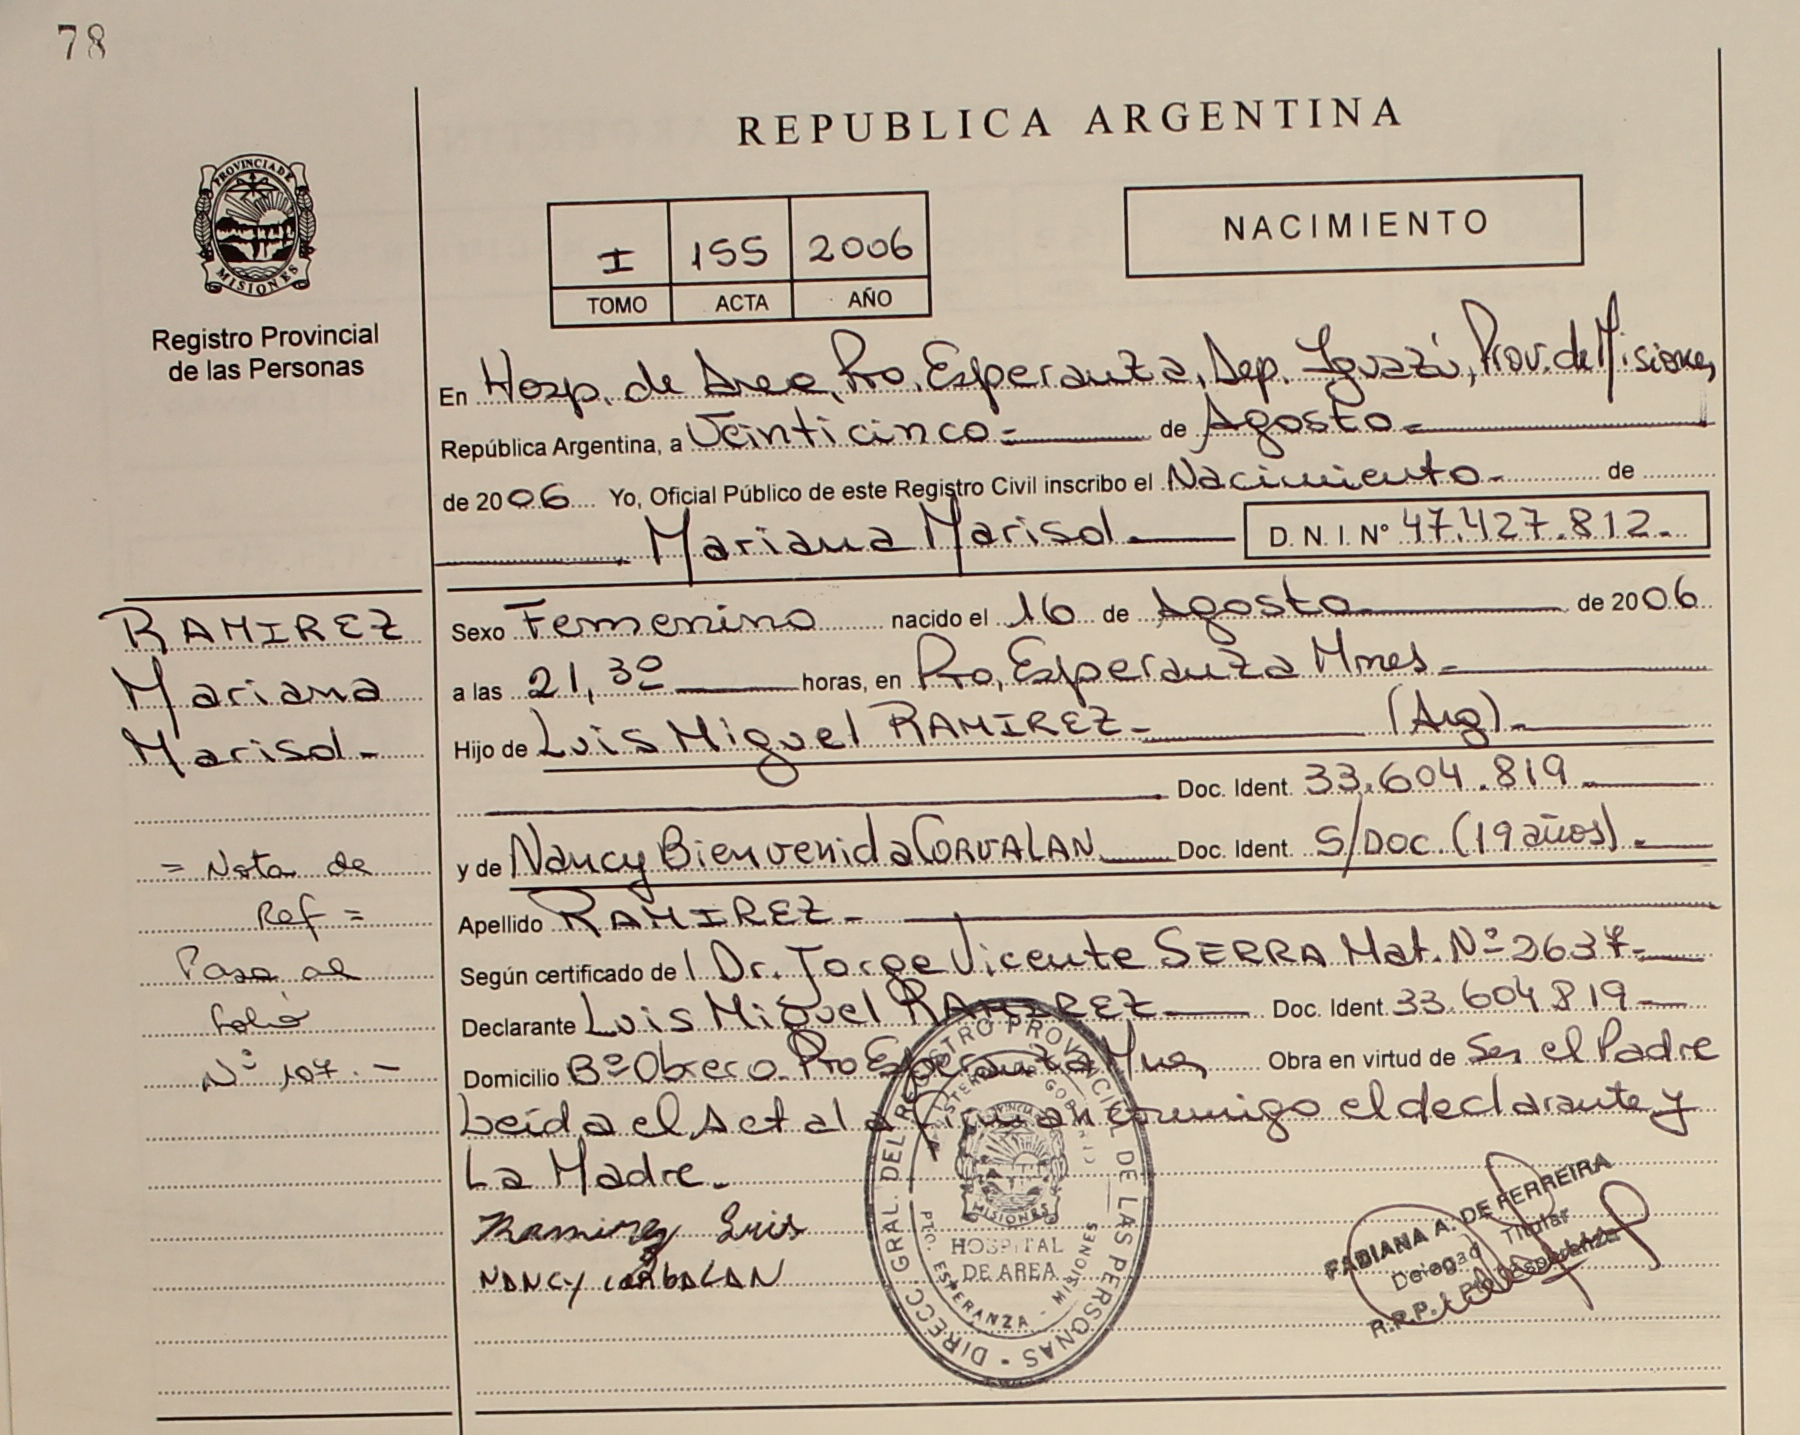 78
REPUBLICA ARGENTINA
PROVINCIA DE
MISIONES
Registro Provincial
de las Personas
I 155 2006
TOMO ACTA AÑO
NACIMIENTO
En Hosp. de Area, Pto. Esperanza, Dep. Iguazú, Prov. de Misiones,
República Argentina, a Veinticinco.= de Agosto.=
de 2006 Yo, Oficial Público de este Registro Civil inscribo el Nacimiento.- de
Mariana Marisol.- D. N. I. Nº 47.427.812.-
Sexo Femenino nacido el 16 de Agosto de 2006
a las 21,30 horas, en Pto, Esperanza Mnes.=
Hijo de Luis Miguel RAMIREZ.- (Arg).-
Doc. Ident. 33.604.819
y de Nancy Bienvenida CORVALAN Doc. Ident. S/DOC (19 años).-
Apellido RAMIREZ.-
Según certificado de l Dr. Jorge Vicente SERRA Mat. Nº 2637.-
Declarante Luis Miguel RAMIREZ Doc. Ident. 33.604.819.-
Domicilio Bº Obrero Pto Esperanza Mnes Obra en virtud de Ser el Padre
Leída el Acta la Firman conmigo el declarante y
La Madre.-
Ramirez Luis
NANCY CORBALAN
RAMIREZ
Mariana
Marisol.-
= Nota de
Ref =
Pasa al
folio
Nº 107.-
DIRECC. GRAL. DEL REGISTRO PROVINCIAL DE LAS PERSONAS
MISIONES
HOSPITAL
DE AREA
PTO. ESPERANZA - MISIONES
FABIANA A. DE FERREIRA
Titular
R.P.P.